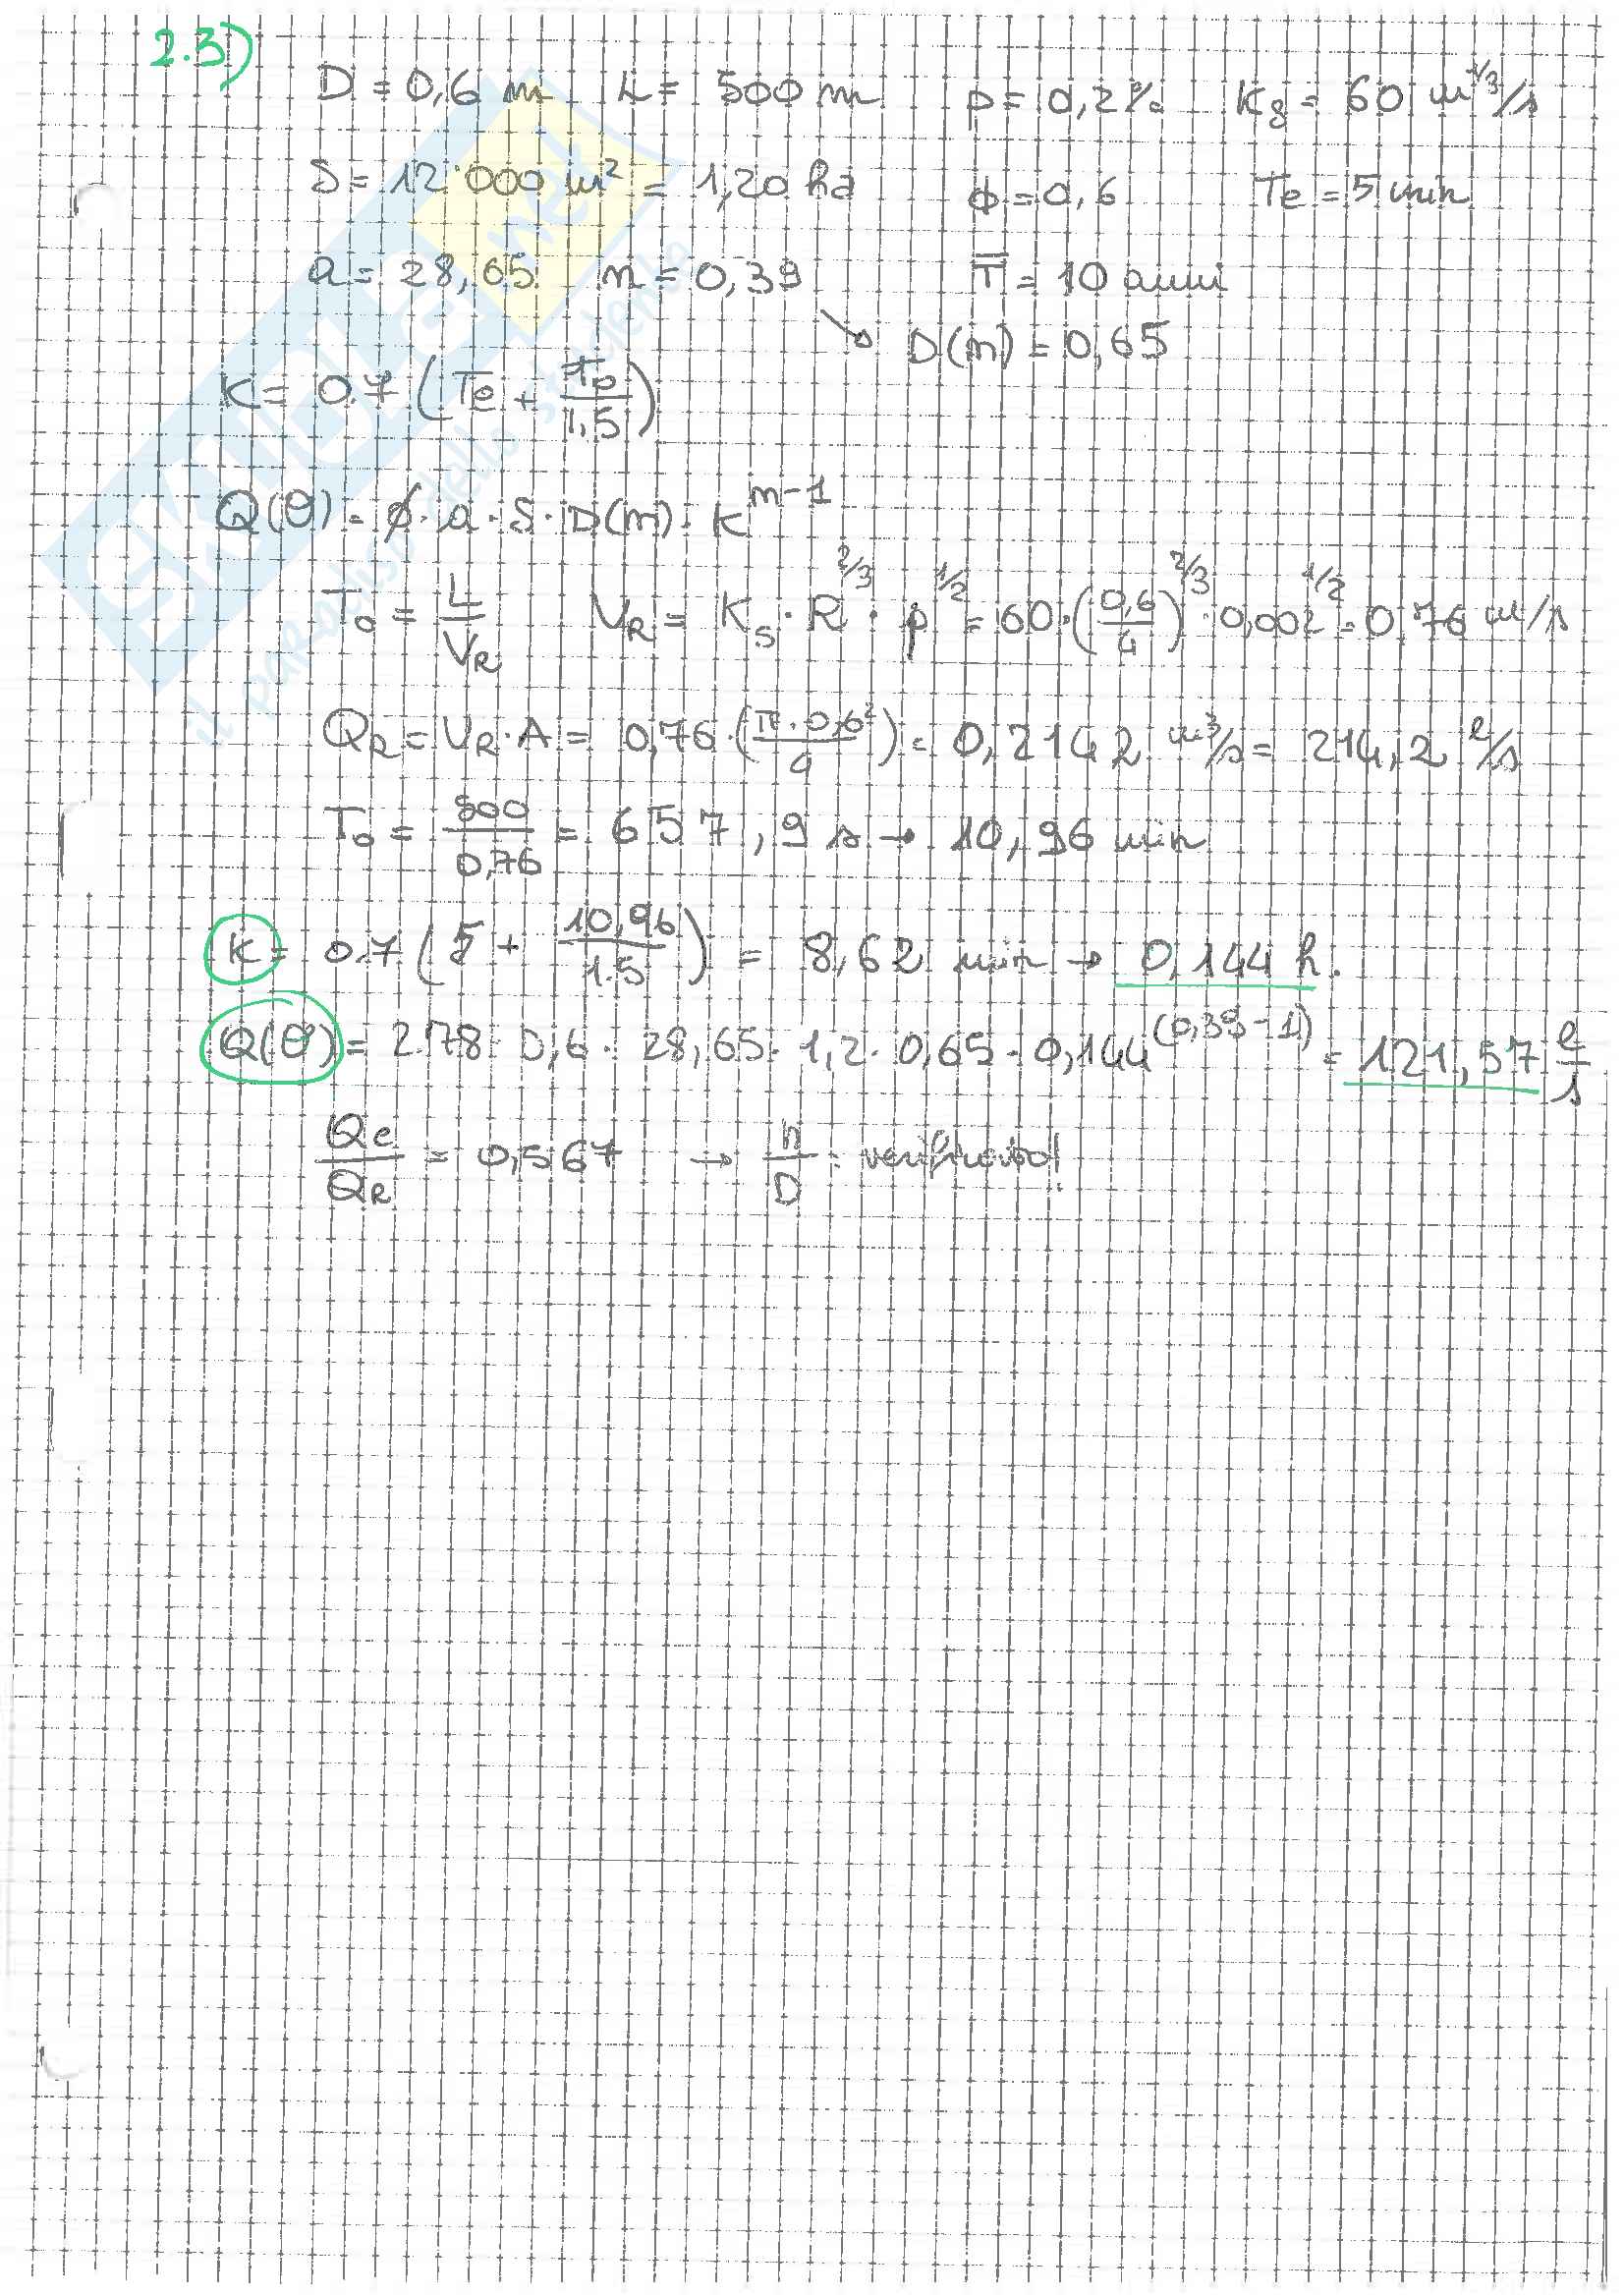 2.3)
D = 0,6 m L = 500 m p = 0,2% Ks = 60 m^1/3/s
S = 12'000 m² = 1,20 ha ϕ = 0,6 Te = 5 min
a = 28,65 n = 0,39 T = 10 anni
→ D(n) = 0,65
K = 0.7 (Te + Tp/1,5)
Q(θ) = ϕ · a · S · D(n) · K^n-1
To = L/VR VR = Ks · R^2/3 · p^1/2 = 60 · (0,6/4)^2/3 · 0,002^1/2 = 0,76 m/s
QR = VR · A = 0,76 · (π · 0,6²/4) = 0,2142 m³/s = 214,2 l/s
To = 500/0,76 = 657,9 s → 10,96 min
K = 0.7 (5 + 10,96/1.5) = 8,62 min → 0,144 h.
Q(θ) = 2.78 · 0,6 · 28,65 · 1,2 · 0,65 · 0,144^(0,39-1) = 121,57 l/s
Qc/QR = 0,567 → h/D = verificato!
SKUOLA.net
il paradiso dello studente